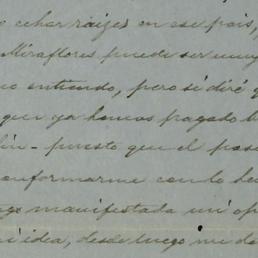 echar raizes en ese pais,
Miraflores puede ser muy
no entiendo, pero si diré q
que ya hemos pagado
puesto que el pas
conformarme con lo he
manifestada mi op
mi idea, desde luego me de